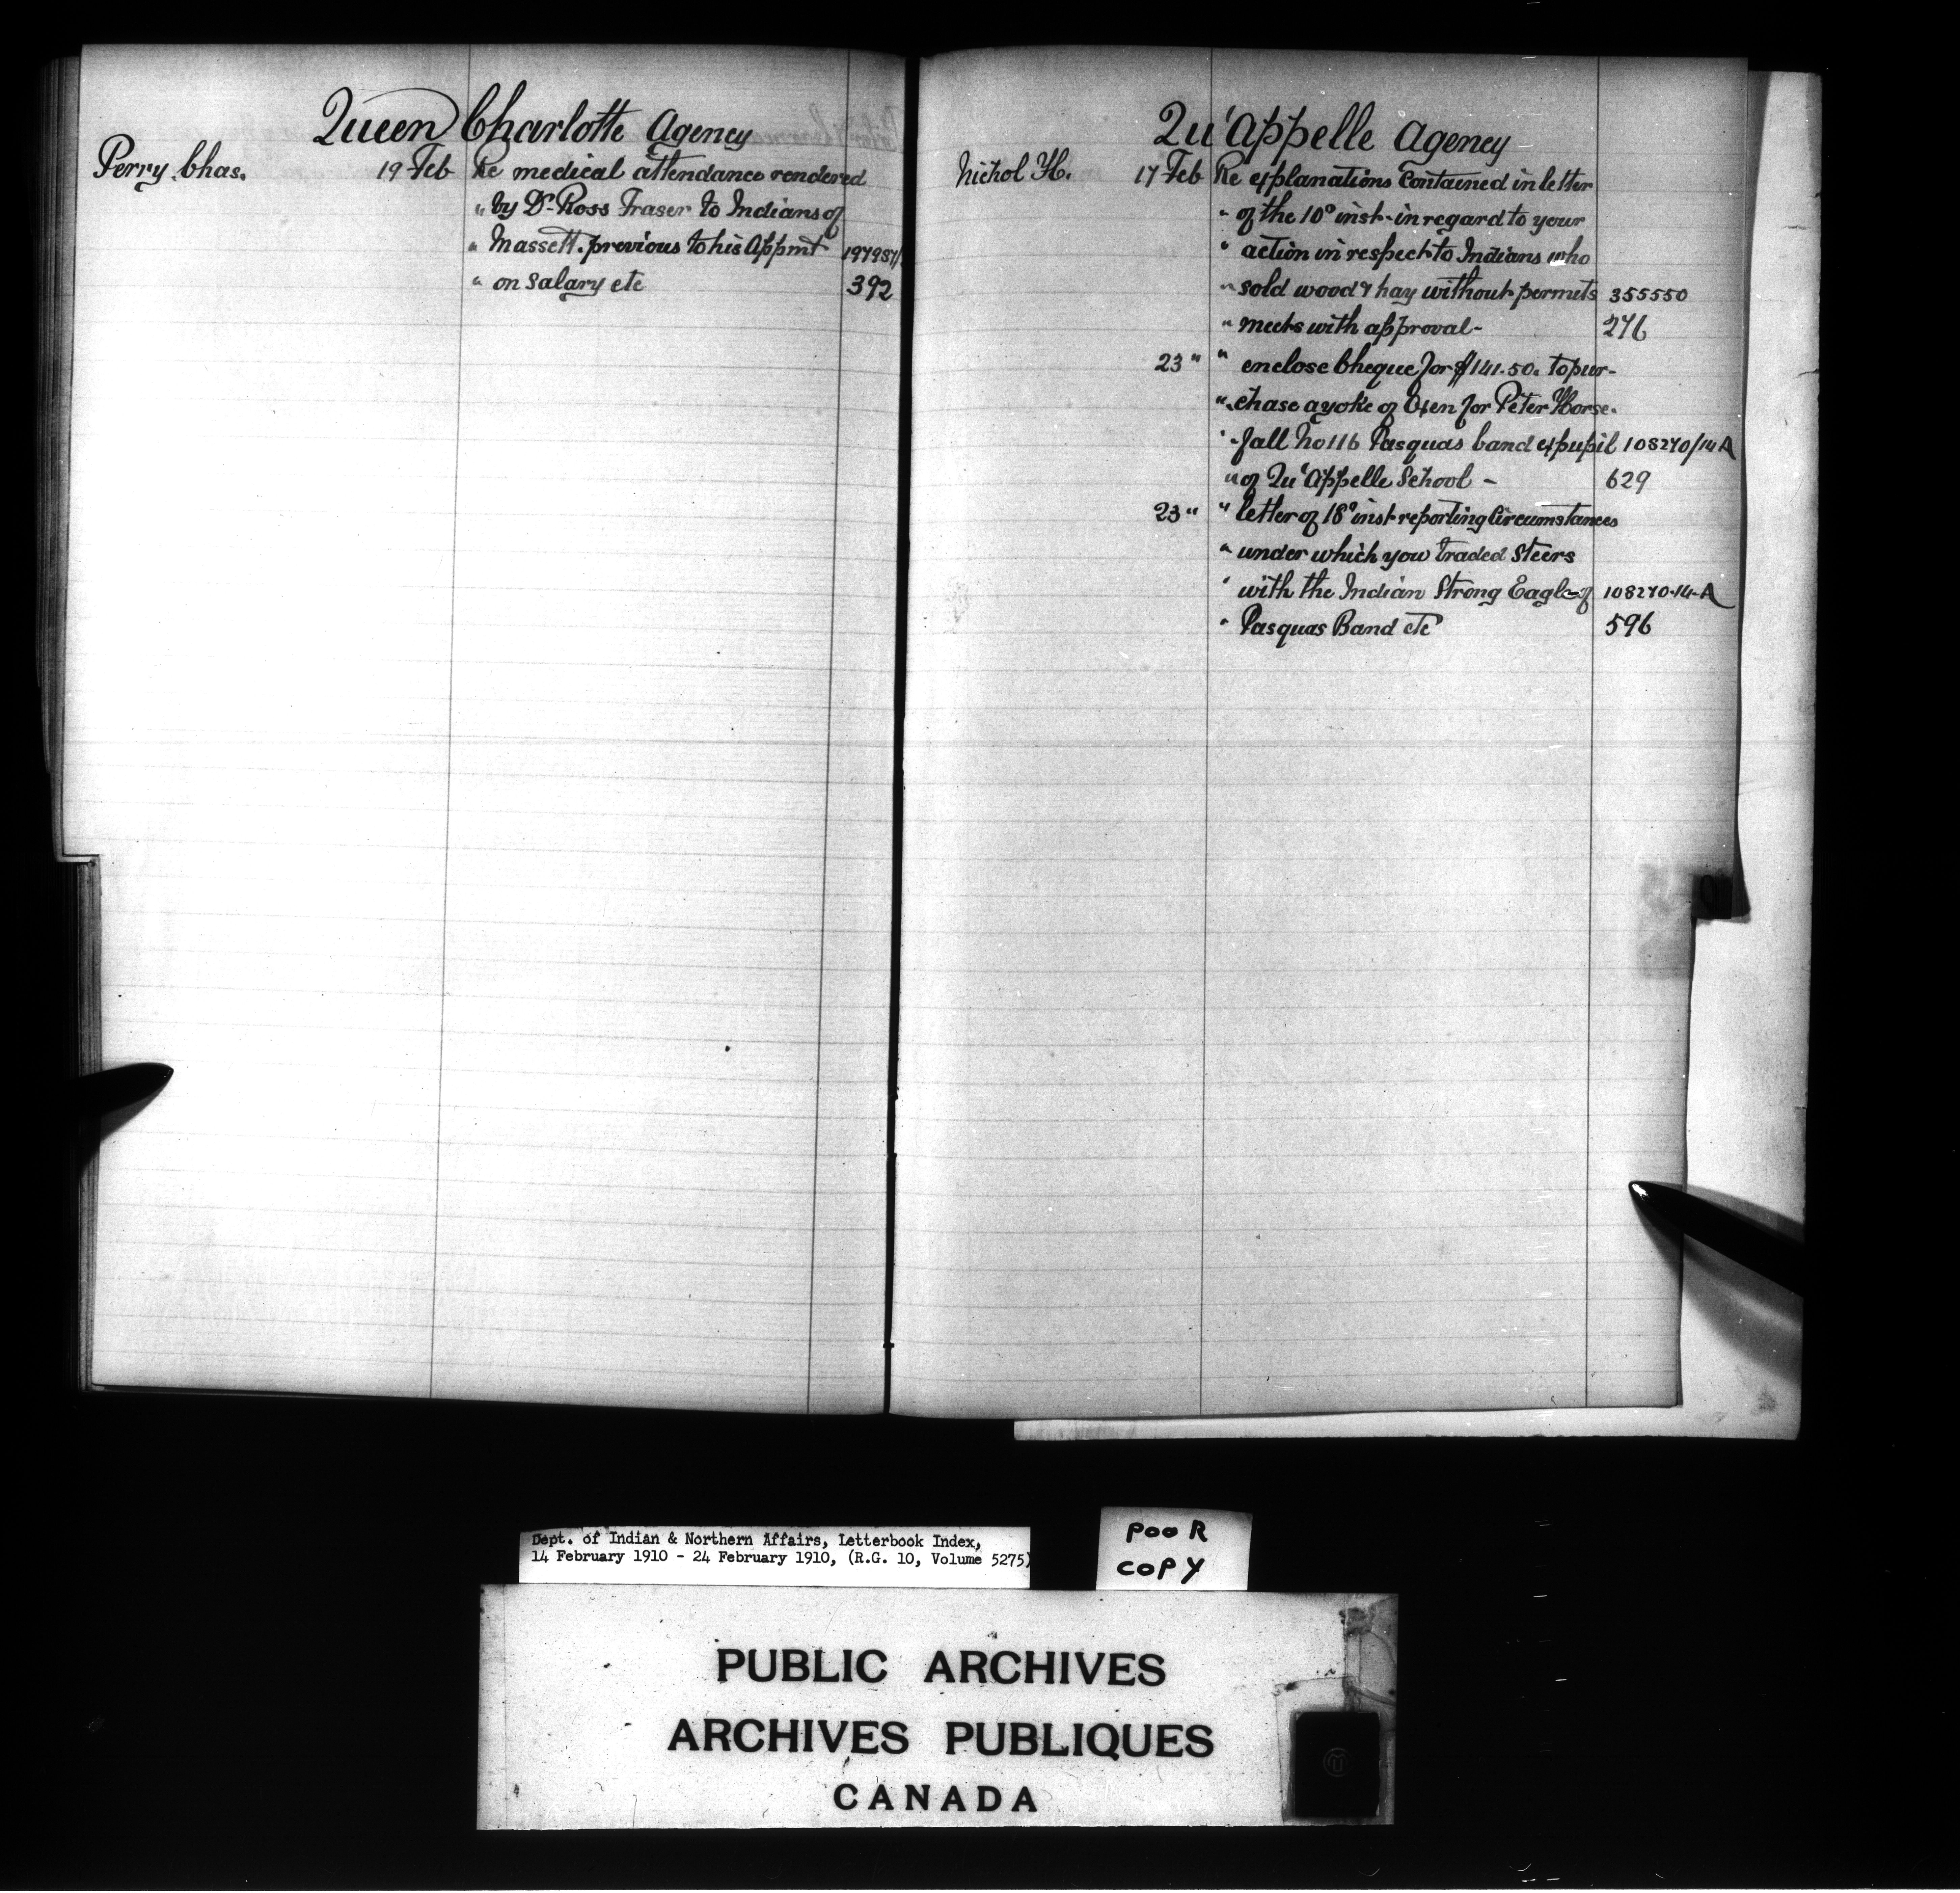 Queen Charlotte Agency
Perry Chas. 19 Feb Re medical attendance rendered
" by Dr Ross Fraser to Indians of
" Massett. previous to his Appmt 197987/
" on salary etc 392
Qu'Appelle Agency
Nichol H. 17 Feb Re explanations contained in letter
" of the 10° inst - in regard to your
" action in respect to Indians who
" sold wood & hay without permits 355550
" meets with approval - 276
23 " " enclose Cheque for $141.50. to pur-
" chase a yoke of Oxen for Peter Horse-
" fall No 116 Pasquas band ex pupil 108270/14A
" of Qu'Appelle School - 629
23 " " letter of 18° inst reporting Circumstances
" under which you traded Steers
" with the Indian Strong Eagle of 108270-14-A
" Pasquas Band etc 596
O
Dept. of Indian & Northern Affairs, Letterbook Index,
14 February 1910 - 24 February 1910, (R.G. 10, Volume 5275)
POOR
COPY
PUBLIC ARCHIVES
ARCHIVES PUBLIQUES
CANADA